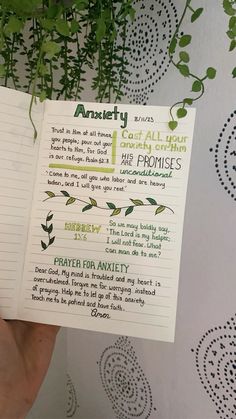 Anxiety
8/11/23
Trust in Him at all times,
you people; pour out your
hearts to him, for God
is our refuge. Psalm 62:8
Cast ALL your
anxiety on Him
HIS ARE PROMISES
unconditional
"Come to me, all you who labor and are heavy
laden, and I will give you rest."
HEBREW
13:6
So we may boldly say:
"The Lord is my helper;
I will not fear. What
can man do to me?"
PRAYER FOR ANXIETY
Dear God, My mind is troubled and my heart is
overwhelmed. Forgive me for worrying, instead
of praying. Help me to let go of this anxiety.
Teach me to be patient and have faith.
Amen